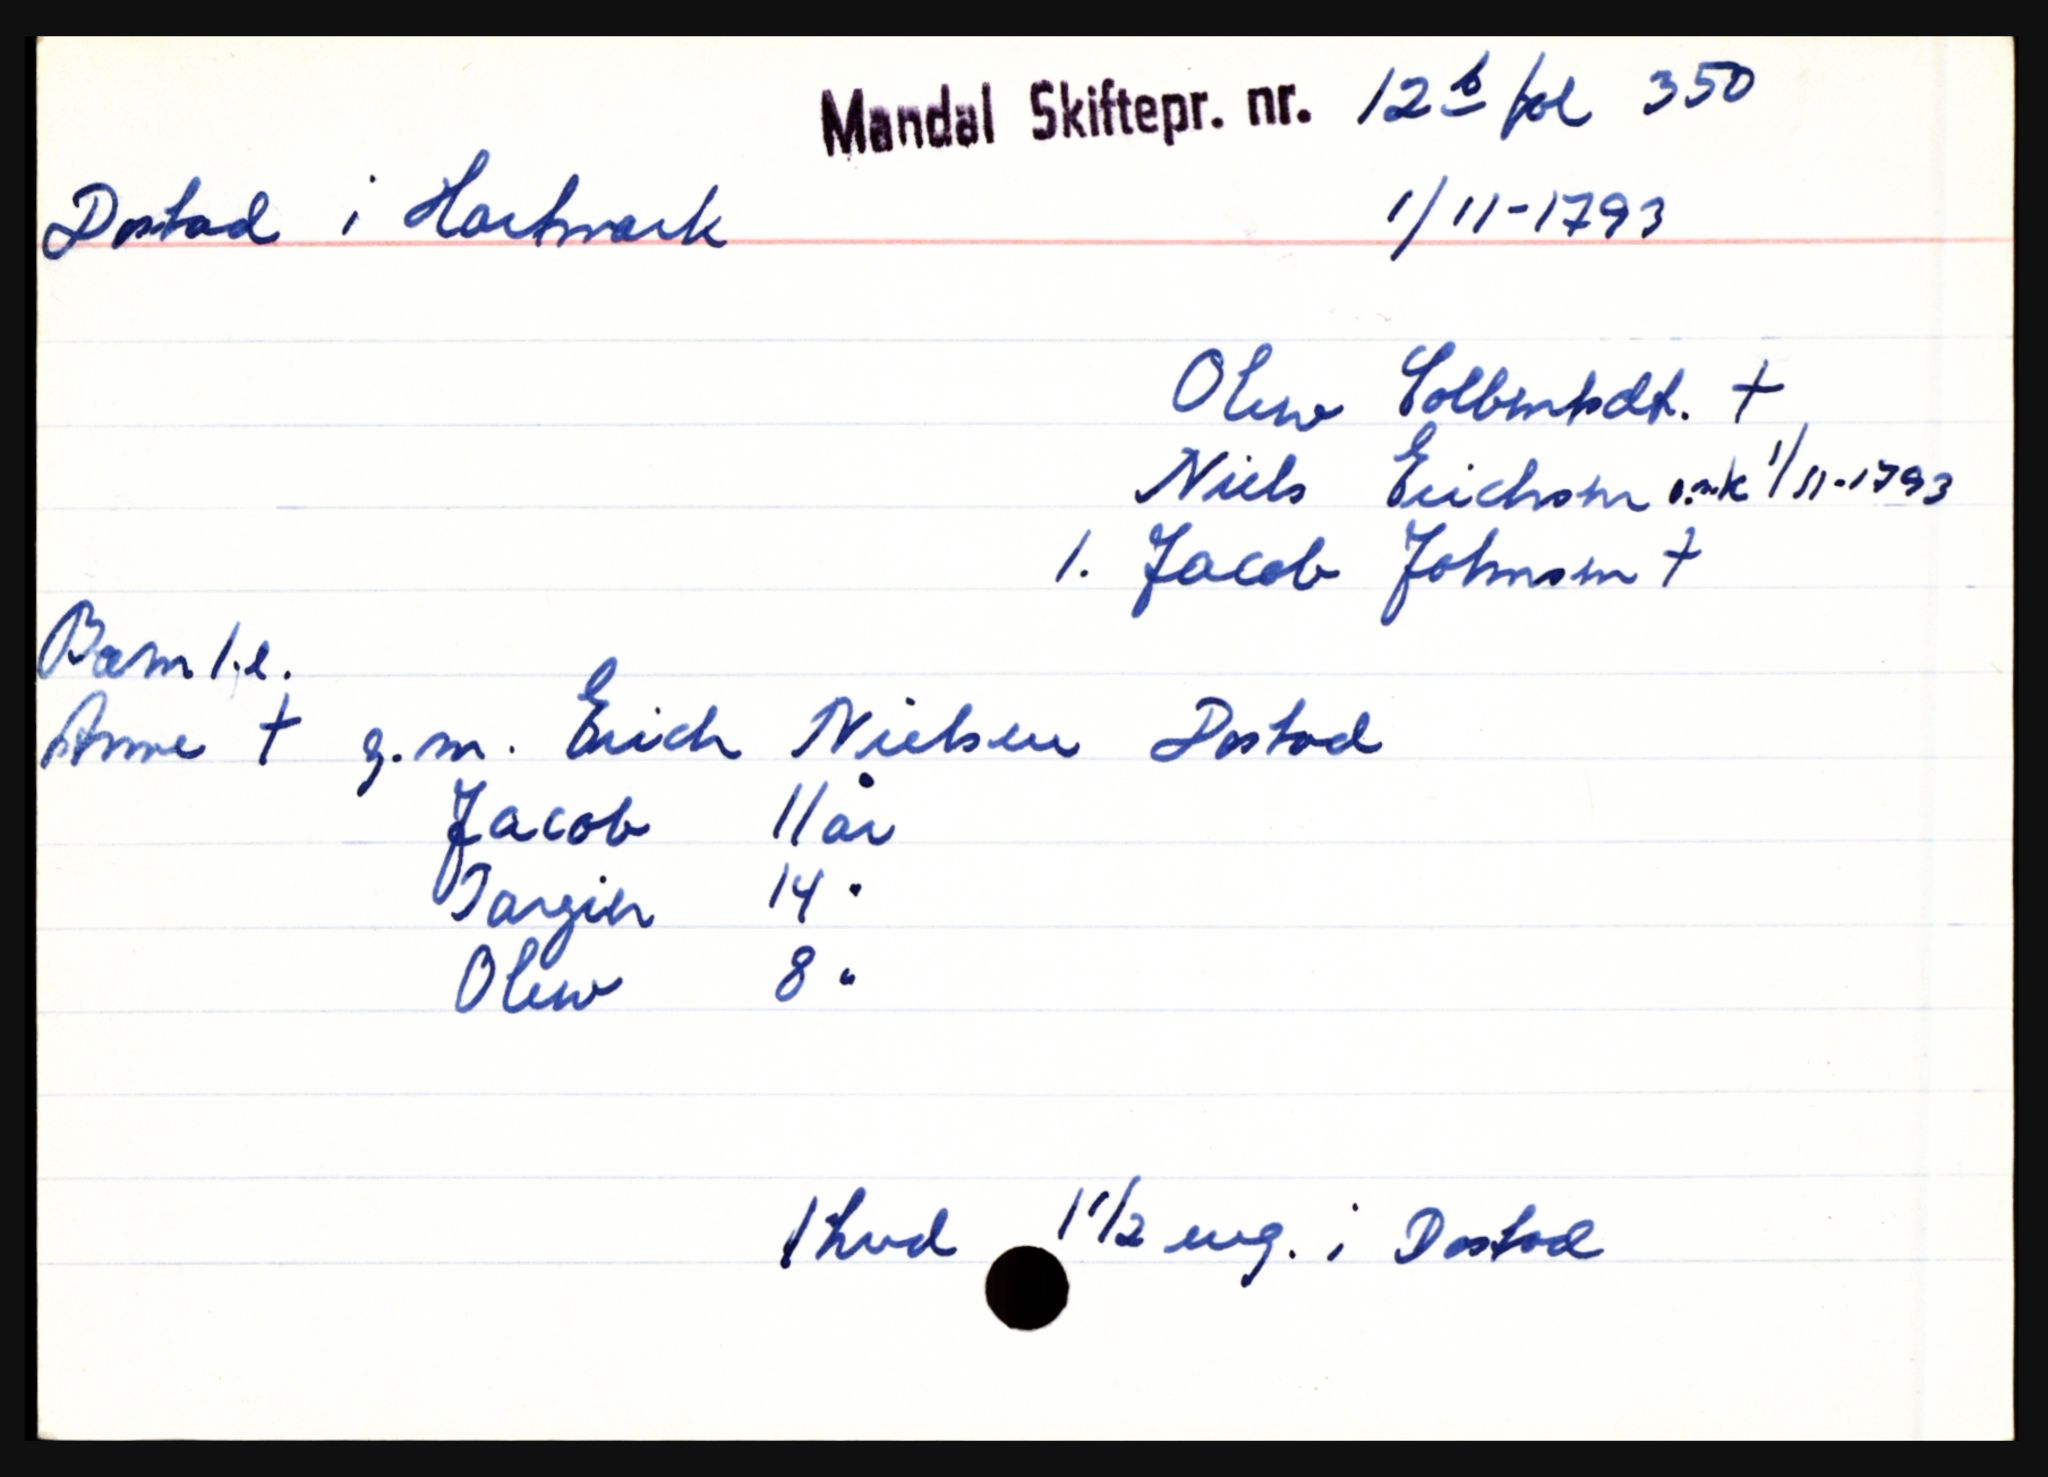 Mandal Skiftepr. nr. 12b fol 350
Dostad i Hartmark 1/11-1793
Olene Colbentsdt. †
Niels Erichsen o.m.k 1/11-1793
1. Jacob Johnsen †
Barn 1.e.
Anne † g.m. Erich Nielsen Dostad
Jacob 11 år
Targier 14 "
Olene 8 "
1 hud 1 1/2 eng. i Dostad